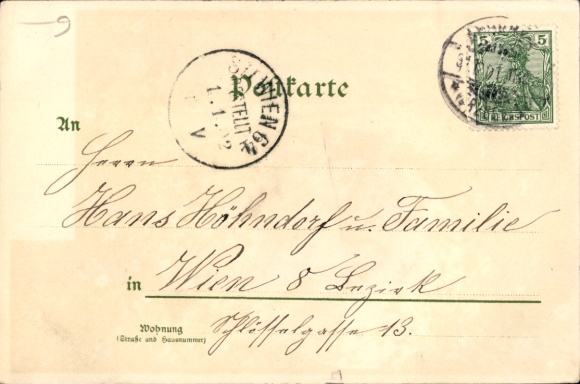 6
Postkarte
5 5
REICHSPOST
WIEN 64
BESTELLT
1.1.02
V
An
Herrn
Hans Höhndorf u. Familie
in Wien 8 Bezirk
Wohnung
(Straße und Hausnummer)
Schlösselgasse 13.